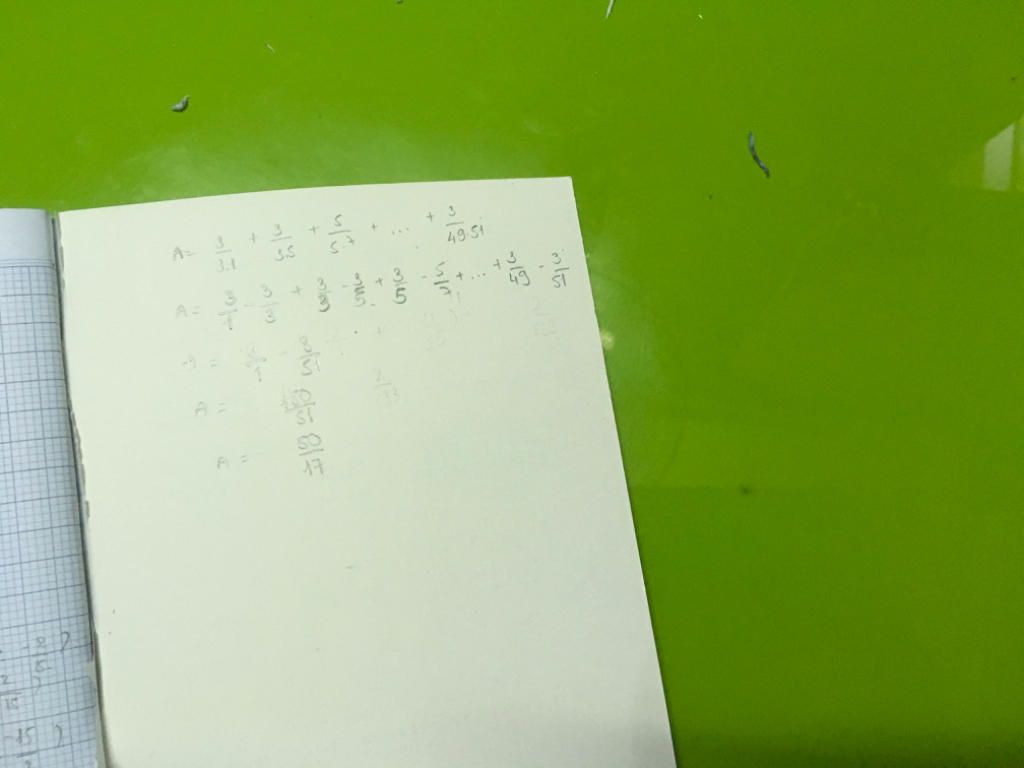 A= 3/3.1 + 3/3.5 + 5/5.7 + ... + 3/49.51
A= 3/1 - 3/3 + 3/3 - 3/5 + 3/5 - 5/7 + ... + 3/49 - 3/51
= 3/1 - 3/51
A= 150/51
A= 50/17
2/15
15 )